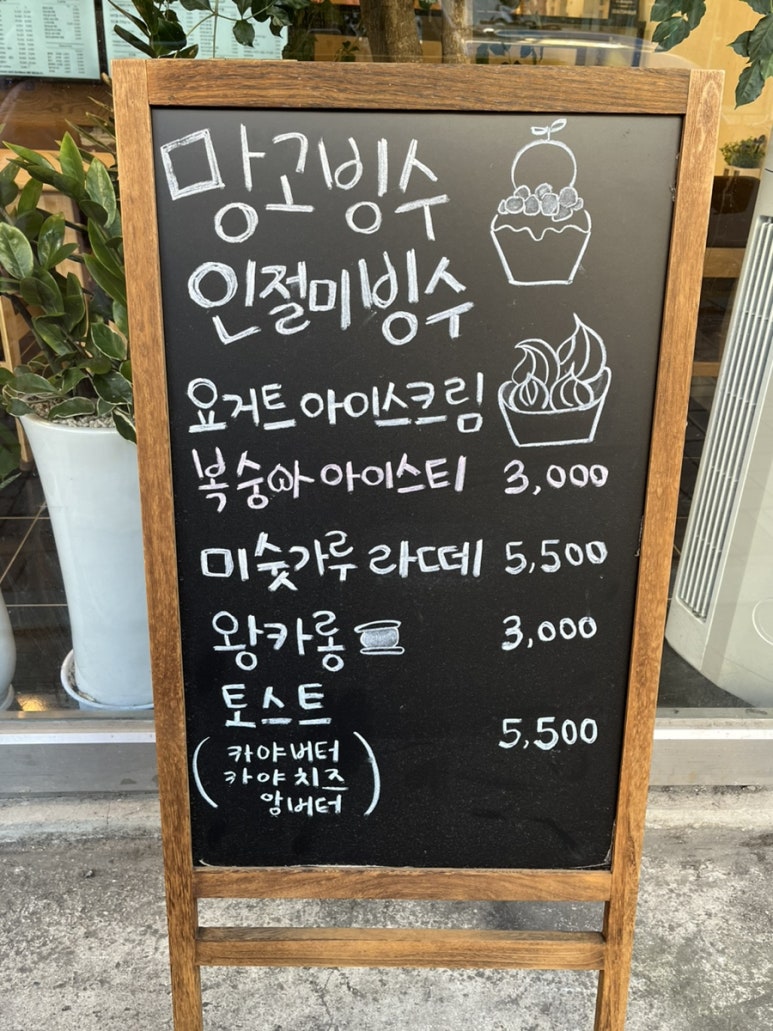 망고빙수
인절미빙수
요거트 아이스크림
복숭아 아이스티 3,000
미숫가루 라떼 5,500
왕카롱 3,000
토스트 5,500
(카야버터
카야치즈
앙버터)